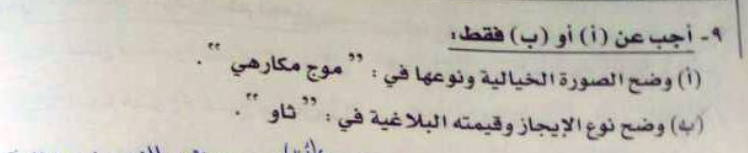 ٩- أجب عن (أ) أو (ب) فقط:
(أ) وضح الصورة الخيالية ونوعها في : " موج مكارهي " .
(ب) وضح نوع الإيجاز وقيمته البلاغية في : " ثاو " .